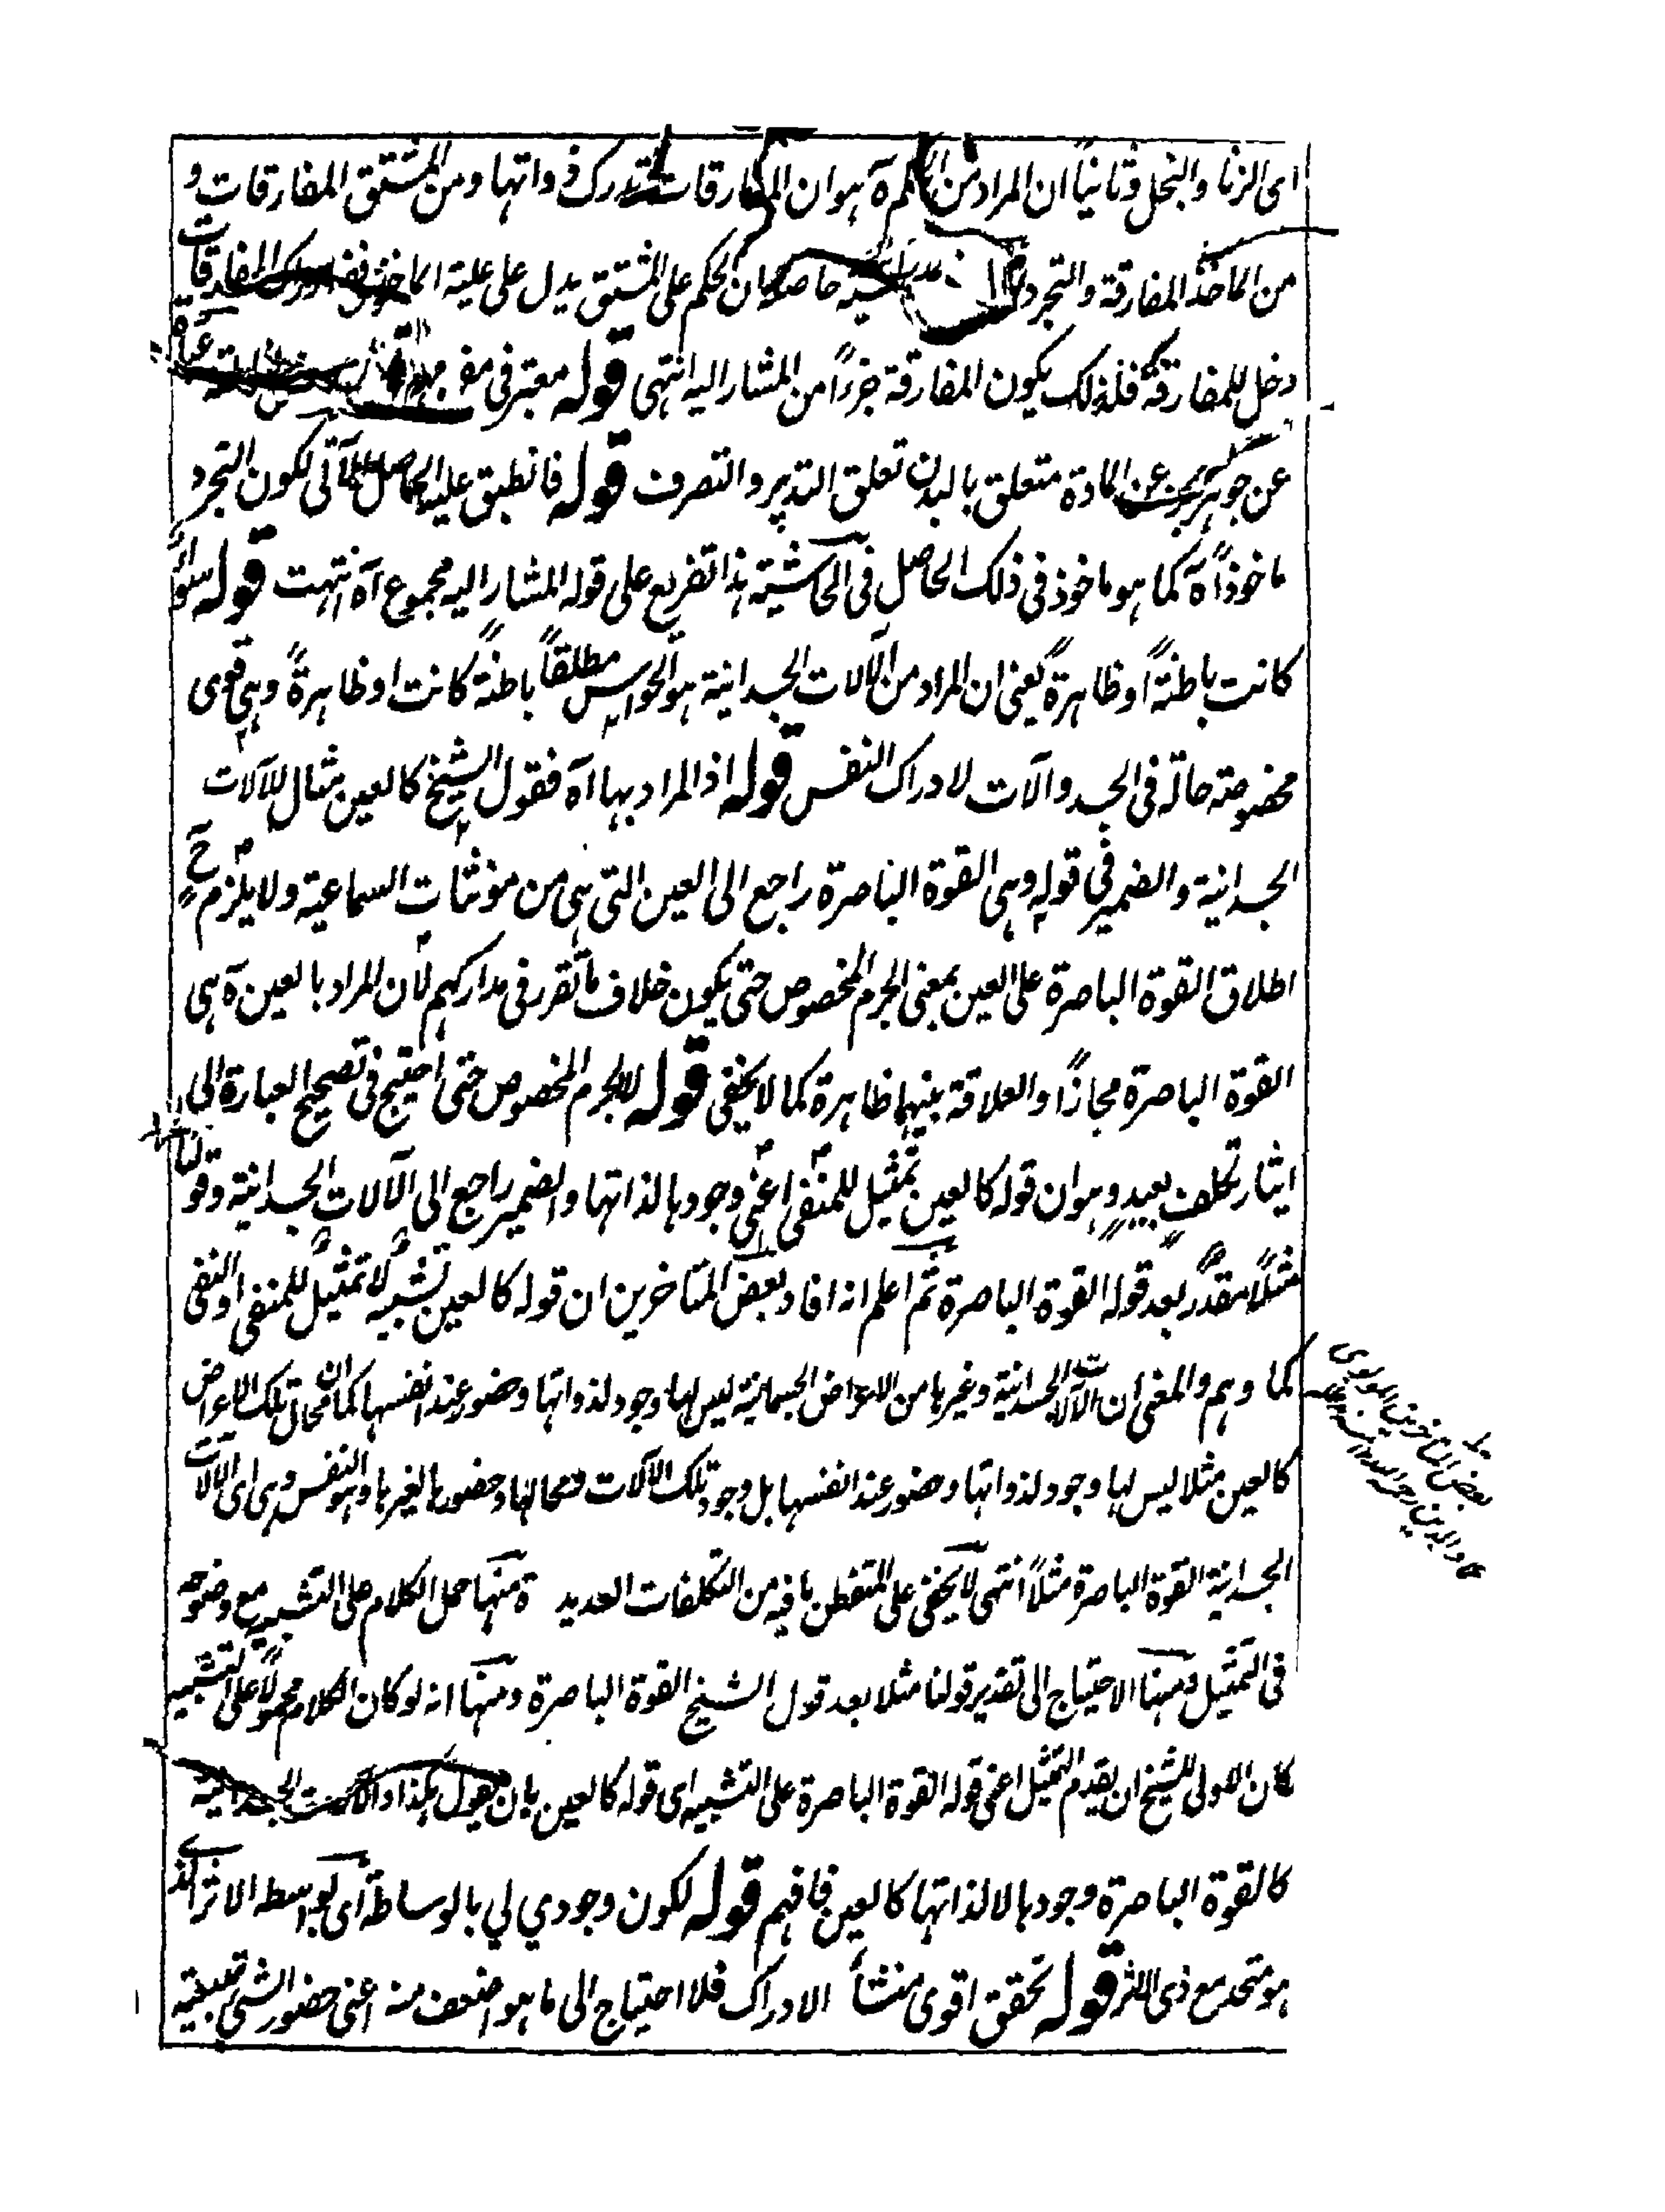 اى الزنا والبخل وثانياً ان المراد من آه هوان المفارقات تدرك ذواتها ومن المشتق المفارقات و
من الماخذ المفارقة والتجرد حاصله ان الحكم على المشتق يدل على علية الماخذ
دخل للمفارقة فلذلك يكون المفارقة جزءاً من المشار اليه انتهى قوله معتبر فى
عن جوهر عن المادة متعلق بالبدن تعلق التدبير والتصرف قوله فانطبق عليه الحاصل الآتى لكون التجرد
ماخوذاً آه كما هو ماخوذ فى ذلك الحاصل فى الحاشية هذا تفريع على قوله المشار اليه مجموع آه انتهت قوله سواء
كانت باطنةً او ظاهرةً يعنى ان المراد من الآلات الجسدانية هو الحواس مطلقاً باطنةً كانت او ظاهرةً وهى قوى
مخصوصة حالة فى الجسد وآلات لادراك النفس قوله اذ المراد بها اه فقول الشيخ كالعين مثال للآلات
الجسدانية والضمير فى قوله وهى القوة الباصرة راجع الى العين التى هى من مؤنثات السماعية ولا يلزم ح
اطلاق القوة الباصرة على العين بمعنى الجرم المخصوص حتى يكون خلاف ما تقرر فى مداركهم لان المراد بالعين ة هى
القوة الباصرة مجازاً والعلاقة بينهما ظاهرة كما لا يخفى قوله لا الجرم المخصوص حتى احتيج فى تصحيح العبارة الى
ايثار تكلف بعيد وهو ان قوله كالعين تمثيل للمنفى اعنى وجودها لذاتها والضمير راجع الى الآلات الجسدانية وقولنا
مثلاً مقدر بعد قوله القوة الباصرة ثم اعلم انه افاد بعض المتاخرين ان قوله كالعين تشبيه لا تمثيل للمنفى او النفى
كما وهم والمعنى ان الآلات الجسدانية وغيرها من الاعراض الجسمانية ليس لها وجود لذواتها وحضور عند انفسها كما ان محال تلك الاعراض
كالعين مثلا ليس لها وجود لذواتها وحضور عند انفسها بل وجود تلك الآلات ومحالها وحضورها لغيرها وهو النفس وهى اى الآلات
الجسدانية القوة الباصرة مثلاً انتهى لا يخفى على المتفطن ما فيه من التكلفات العديدة منها حمل الكلام على التشبيه مع وضوحه
فى التمثيل ومنها الاحتياج الى تقدير قولنا مثلا بعد قول الشيخ القوة الباصرة ومنها انه لو كان الكلام محمولاً على التشبيه
كان الاولى للشيخ ان يقدم التمثيل اعنى قوله القوة الباصرة على التشبيه اى قوله كالعين بان يقول هكذا والآلات الجسدانية
كالقوة الباصرة وجودها لا لذاتها كالعين فافهم قوله لكون وجودي لي بالوساطة اى بواسطه الاثر الذى
هو متحد مع ذى الاثر قوله تحقق اقوى منشأ الادراك فلا احتياج الى ما هو اضعف منه اعنى حضور الشئ بتبعية
بعض المتاخرين